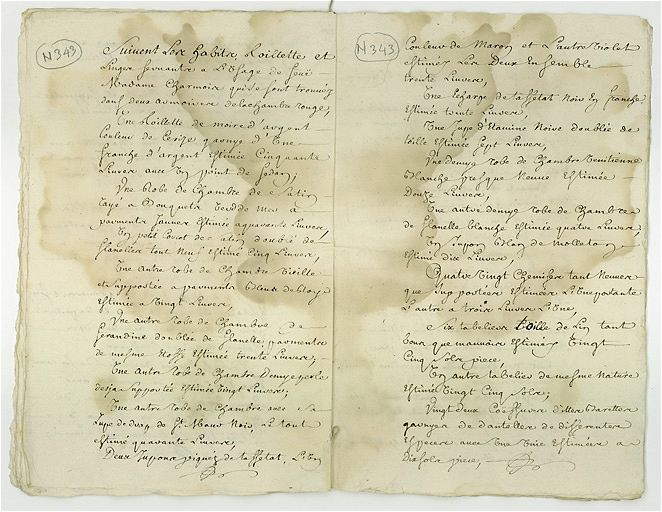 N 343
Suivent Les habits Toillette et
Linges servants a L'Usage de feüe
Madame Charmois qui se sont trouvés
dans deux armoires de la chambre rouge,
Une Toillette de moire d'argent
Couleur de Cerize garnye d'Une
franche d'argent Estimée Cinquante
Livres avec Un point de
Une Robe de Chambre de Satin
rayé a Bouquets
Estimée Livres,
Un petit de satin doublé de
flanelle tout Neuf Estimé Cinq Livres,
Une autre robe de Chambre Vieille
et Supportée a
Estimée a Vingt Livres,
Une autre robe de Chambre de
ferandine doublée de flanelle,
de mesme Etoffe Estimée trente Livres,
Une autre Robe de Chambre
desja supportée Estimée Vingt Livres,
Une autre robe de Chambre avec Sa
Jupe de drap de St Maur Noir, Le tout
Estimé quarante Livres,
Deux Jupons piqués de taffetat, L'Un
N 343
Couleur de Maron et L'autre Violet
Estimés Les Deux Ensemble
trente Livres,
Une Echarge de taffetat Noir En franche
Estimée trente Livres,
Une Jupe d'Etamine Noire doublée de
toille Estimée Sept Livres,
Une demye robe de Chambre
blanche presque Neuve Estimée
Douze Livres,
Une autre demye robe de Chambre
de flanelle blanche Estimée quatre Livres,
Un Jupon blan de molleton,
Estimé dix Livres,
Quatre Vingt Chemises tant Neuves
que Supportées Estimées L'Une portante
L'autre a trois Livres L'Une
Six tabeliers toille de Lin tant
bons que mauvais Estimés Vingt
Cinq Sols piece,
Un autre tabelier de mesme Nature
Estimé Vingt Cinq Sols,
Vingt deux Coeffures
garnyes de dantelles de differentes
Especes avec Une Estimées a
Dix sols piece,